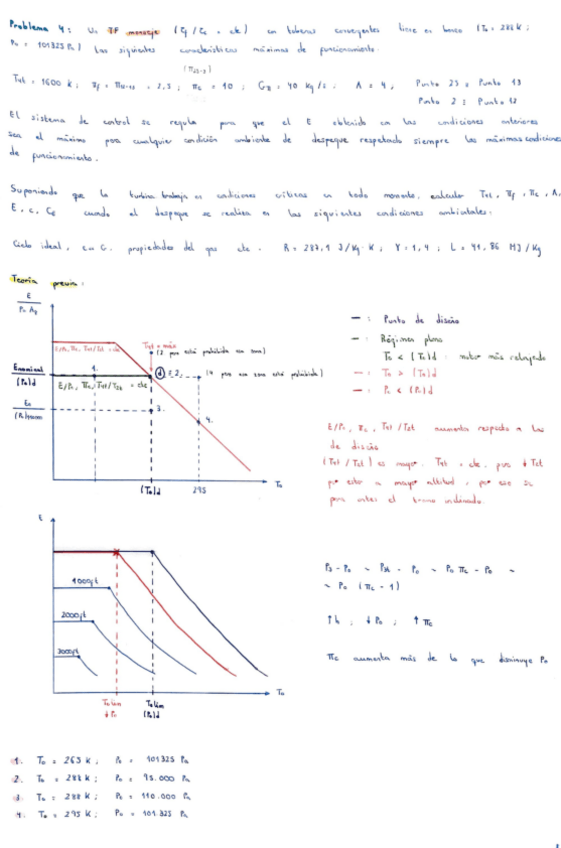 Problema 4: Un TF monoeje (Cf / Cc = cte) con toberas convergentes tiene en banco (T₀ = 288 K;
P₀ = 101325 Pa) las siguientes características máximas de funcionamiento.
(π₂₃-₃)
T4t = 1600 K; πf = 2,3; πc = 10; G = 40 kg/s; Λ = 4; Punto 23 = Punto 13
Punto 2 = Punto 12
El sistema de control se regula para que el E obtenido con las condiciones anteriores
sea el máximo para cualquier condición ambiente de despegue respetando siempre las máximas condiciones
de funcionamiento.
Suponiendo que la turbina trabaja en condiciones críticas en todo momento, calcular T4t, πf, πc, Λ,
E, c, CE cuando el despegue se realiza en las siguientes condiciones ambientales:
Ciclo ideal, propiedades del gas cte. R = 287,1 J/kg·K; γ = 1,4; L = 41,86 MJ/kg
Teoría previa:
E
P₀ A₂
— : Punto de diseño
— : Régimen plano
T₀ < (T₀)d : motor más relajado
— : T₀ > (T₀)d
— : P₀ < (P₀)d
T4t = máx
(3 pero está prohibida esa zona)
Enominal
(P₀)d
1.
d = 2.
(4 pero esa zona está prohibida)
E/P₀, πc, T4t/T2t = cte
E₀
3.
4.
(T₀)d
295
T₀
E/P₀, πc, T4t/T2t aumenta respecto a las
de diseño
(T4t/T2t) es mayor. T4t = cte, pues ↓ T2t
por estar a mayor altitud, por eso se
pone antes el tramo inclinado.
E
1000ft
2000ft
3000ft
T₀
T₀ lím
↓ P₀
T₀ lím
(P₀)d
P₃ - P₀ ~ P3t - P₀ ~ P₀ πc - P₀ ~
~ P₀ (πc - 1)
↑ h ; ↓ P₀ ; ↑ πc
πc aumenta más de lo que disminuye P₀
1. T₀ = 263 K; P₀ = 101325 Pa
2. T₀ = 288 K; P₀ = 95.000 Pa
3. T₀ = 288 K; P₀ = 110.000 Pa
4. T₀ = 295 K; P₀ = 101.325 Pa